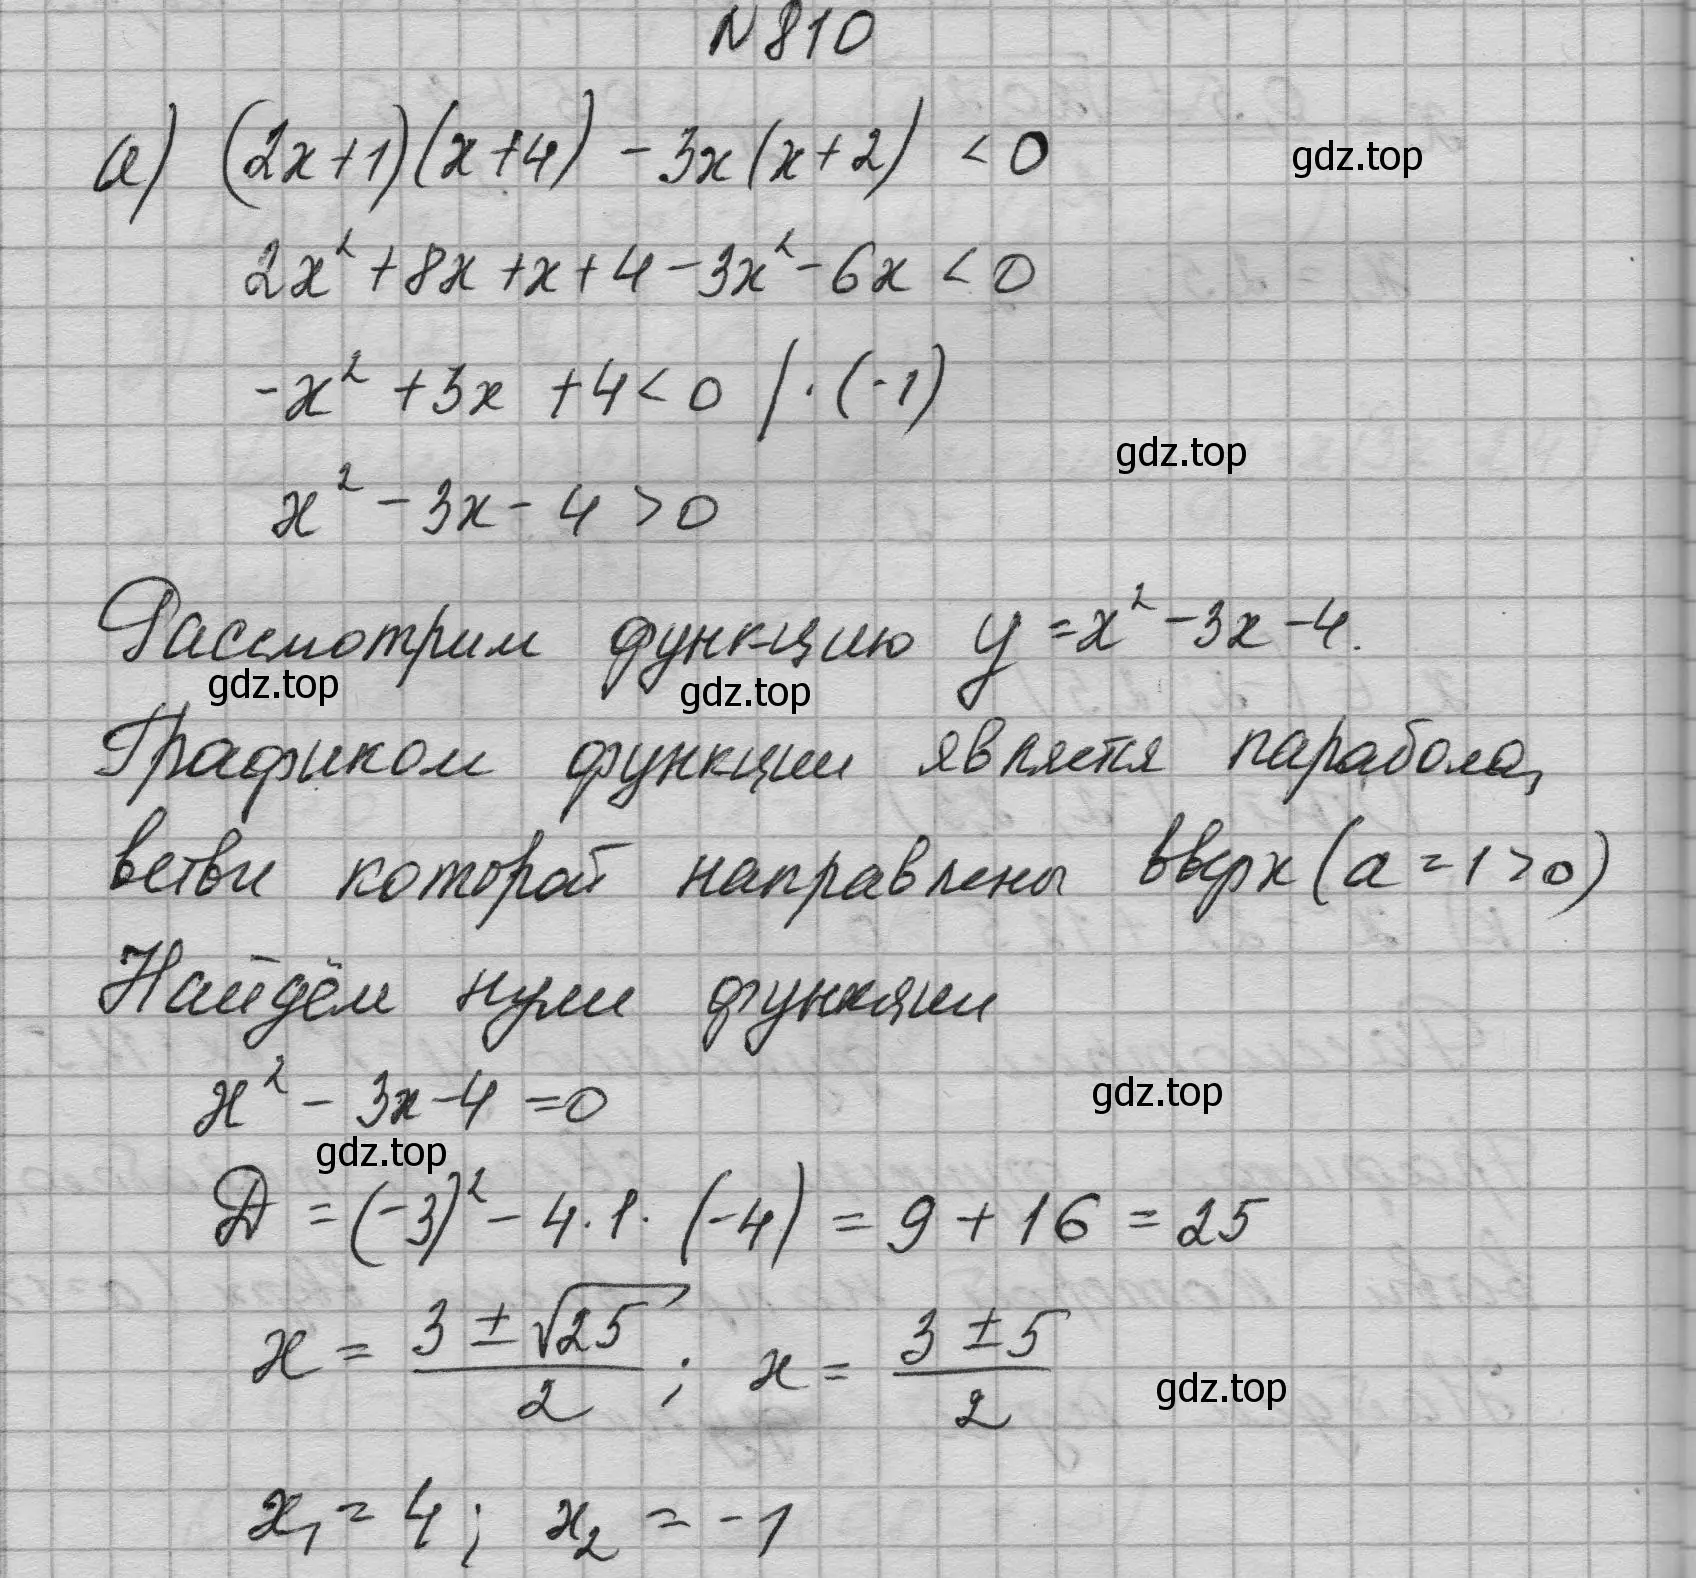 N 810
а) (2x+1)(x+4) - 3x(x+2) < 0
gdz.top
2x² + 8x + x + 4 - 3x² - 6x < 0
-x² + 3x + 4 < 0 / · (-1)
gdz.top
x² - 3x - 4 > 0
Рассмотрим функцию y = x² - 3x - 4.
gdz.top gdz.top
Графиком функции является парабола,
ветви которой направлены вверх (a = 1 > 0)
Найдём нули функции
x² - 3x - 4 = 0
gdz.top
gdz.top
D = (-3)² - 4 · 1 · (-4) = 9 + 16 = 25
x = (3 ± √25)/2 ; x = (3 ± 5)/2
gdz.top
x₁ = 4 ; x₂ = -1